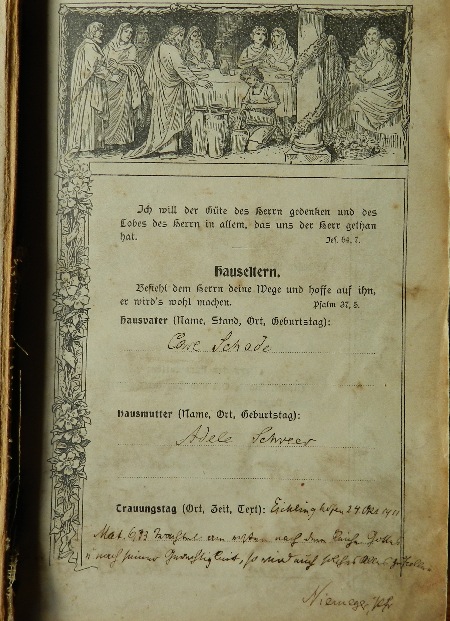 Ich will der Güte des Herrn gedenken und des
Lobes des Herrn in allem, das uns der Herr gethan
hat. Jes. 63, 7.
Hauseltern.
Befiehl dem Herrn deine Wege und hoffe auf ihn,
er wird's wohl machen. Psalm 37, 5.
Hausvater (Name, Stand, Ort, Geburtstag):
Schade
Hausmutter (Name, Ort, Geburtstag):
Adele
Trauungstag (Ort, Zeit, Text): 24 Okt
Mat. 6, am ersten nach dem Reiche Gottes
nach seiner Gerechtigkeit, so wird euch solches alles